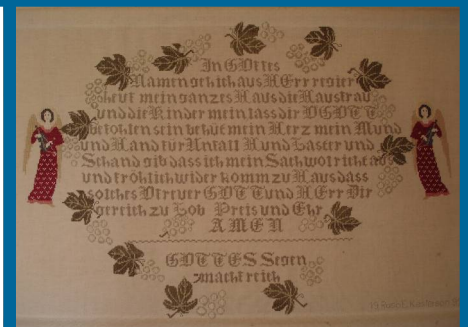 In GOttes
Namen geh ich aus HErr regier
heut mein ganzes Haus die Hausfrau
und die Kinder mein lass dir O GOTT
befohlen sein behuet mein Herz mein Mund
und Hand fur Unfall Sund Laster und
Schand gib dass ich mein Sach wol richt aus
und frohlich wider komm zu Haus dass
solches O treuer GOTT und HErr Dir
gereich zu Lob Preis und Ehr
AMEN
GOTTES Segen
macht reich